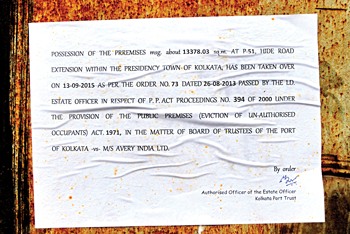 POSSESSION OF THE PRREMISES msg. about 13378.03 sq.m. AT P-51, HIDE ROAD
EXTENSION WITHIN THE PRESIDENCY TOWN OF KOLKATA, HAS BEEN TAKEN OVER
ON 13-09-2015 AS PER THE ORDER NO. 73 DATED 26-08-2013 PASSED BY THE LD
ESTATE OFFICER IN RESPECT OF P. P. ACT PROCEEDINGS NO. 394 OF 2000 UNDER
THE PROVISION OF THE PUBLIC PREMISES (EVICTION OF UN-AUTHORISED
OCCUPANTS) ACT. 1971, IN THE MATTER OF BOARD OF TRUSTEES OF THE PORT
OF KOLKATA -vs- M/S AVERY INDIA LTD.
By order
Authorised Officer of the Estate Officer
Kolkata Port Trust